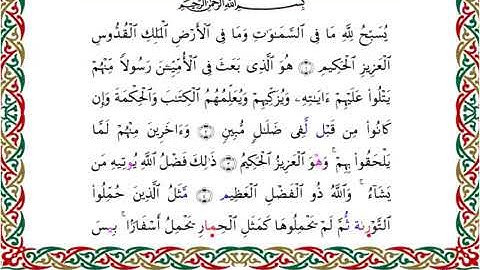 بِسْمِ ٱللَّهِ ٱلرَّحْمَٰنِ ٱلرَّحِيمِ
يُسَبِّحُ لِلَّهِ مَا فِى ٱلسَّمَٰوَٰتِ وَمَا فِى ٱلْأَرْضِ ٱلْمَلِكِ ٱلْقُدُّوسِ
ٱلْعَزِيزِ ٱلْحَكِيمِ ۝١ هُوَ ٱلَّذِى بَعَثَ فِى ٱلْأُمِّيِّـۧنَ رَسُولًا مِّنْهُمْ
يَتْلُوا۟ عَلَيْهِمْ ءَايَٰتِهِۦ وَيُزَكِّيهِمْ وَيُعَلِّمُهُمُ ٱلْكِتَٰبَ وَٱلْحِكْمَةَ وَإِن
كَانُوا۟ مِن قَبْلُ لَفِى ضَلَٰلٍ مُّبِينٍ ۝٢ وَءَاخَرِينَ مِنْهُمْ لَمَّا
يَلْحَقُوا۟ بِهِمْ ۚ وَهْوَ ٱلْعَزِيزُ ٱلْحَكِيمُ ۝٣ ذَٰلِكَ فَضْلُ ٱللَّهِ يُوتِيهِ مَن
يَشَآءُ ۚ وَٱللَّهُ ذُو ٱلْفَضْلِ ٱلْعَظِيمِ ۝٤ مَثَلُ ٱلَّذِينَ حُمِّلُوا۟
ٱلتَّوْرَىٰةَ ثُمَّ لَمْ يَحْمِلُوهَا كَمَثَلِ ٱلْحِمَارِ يَحْمِلُ أَسْفَارًۢا ۚ بِيسَ